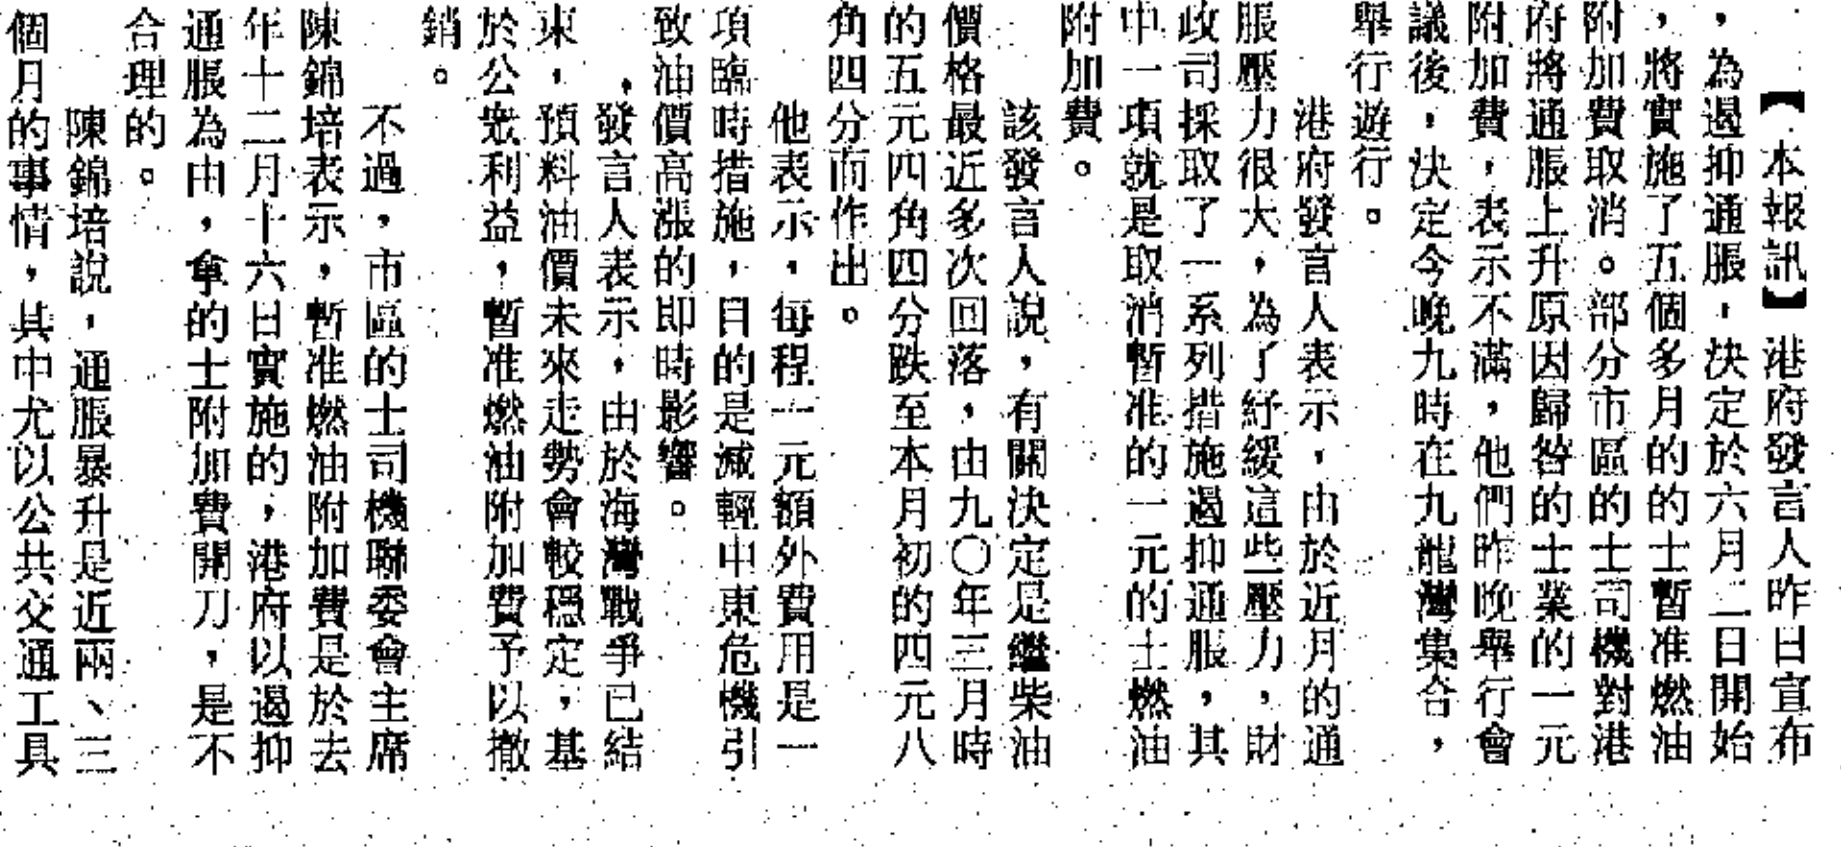 【本報訊】港府發言人昨日宣布
，為遏抑通脹，決定於六月二日開始
，將實施了五個多月的的士暫准燃油
附加費取消。部分市區的士司機對港
府將通脹上升原因歸咎的士業的一元
附加費，表示不滿，他們昨晚舉行會
議後，決定今晚九時在九龍灣集合，
舉行遊行。
港府發言人表示，由於近月的通
脹壓力很大，為了紓緩這些壓力，財
政司採取了一系列措施遏抑通脹，其
中一項就是取消暫准的一元的士燃油
附加費。
該發言人說，有關決定是繼柴油
價格最近多次回落，由九〇年三月時
的五元四角四分跌至本月初的四元八
角四分而作出。
他表示，每程一元額外費用是一
項臨時措施，目的是減輕中東危機引
致油價高漲的即時影響。
，發言人表示，由於海灣戰爭已結
束，預料油價未來走勢會較穩定，基
於公眾利益，暫准燃油附加費予以撤
銷。
不過，市區的士司機聯委會主席
陳錦培表示，暫准燃油附加費是於去
年十二月十六日實施的，港府以遏抑
通脹為由，拿的士附加費開刀，是不
合理的。
陳錦培說，通脹暴升是近兩、三
個月的事情，其中尤以公共交通工具